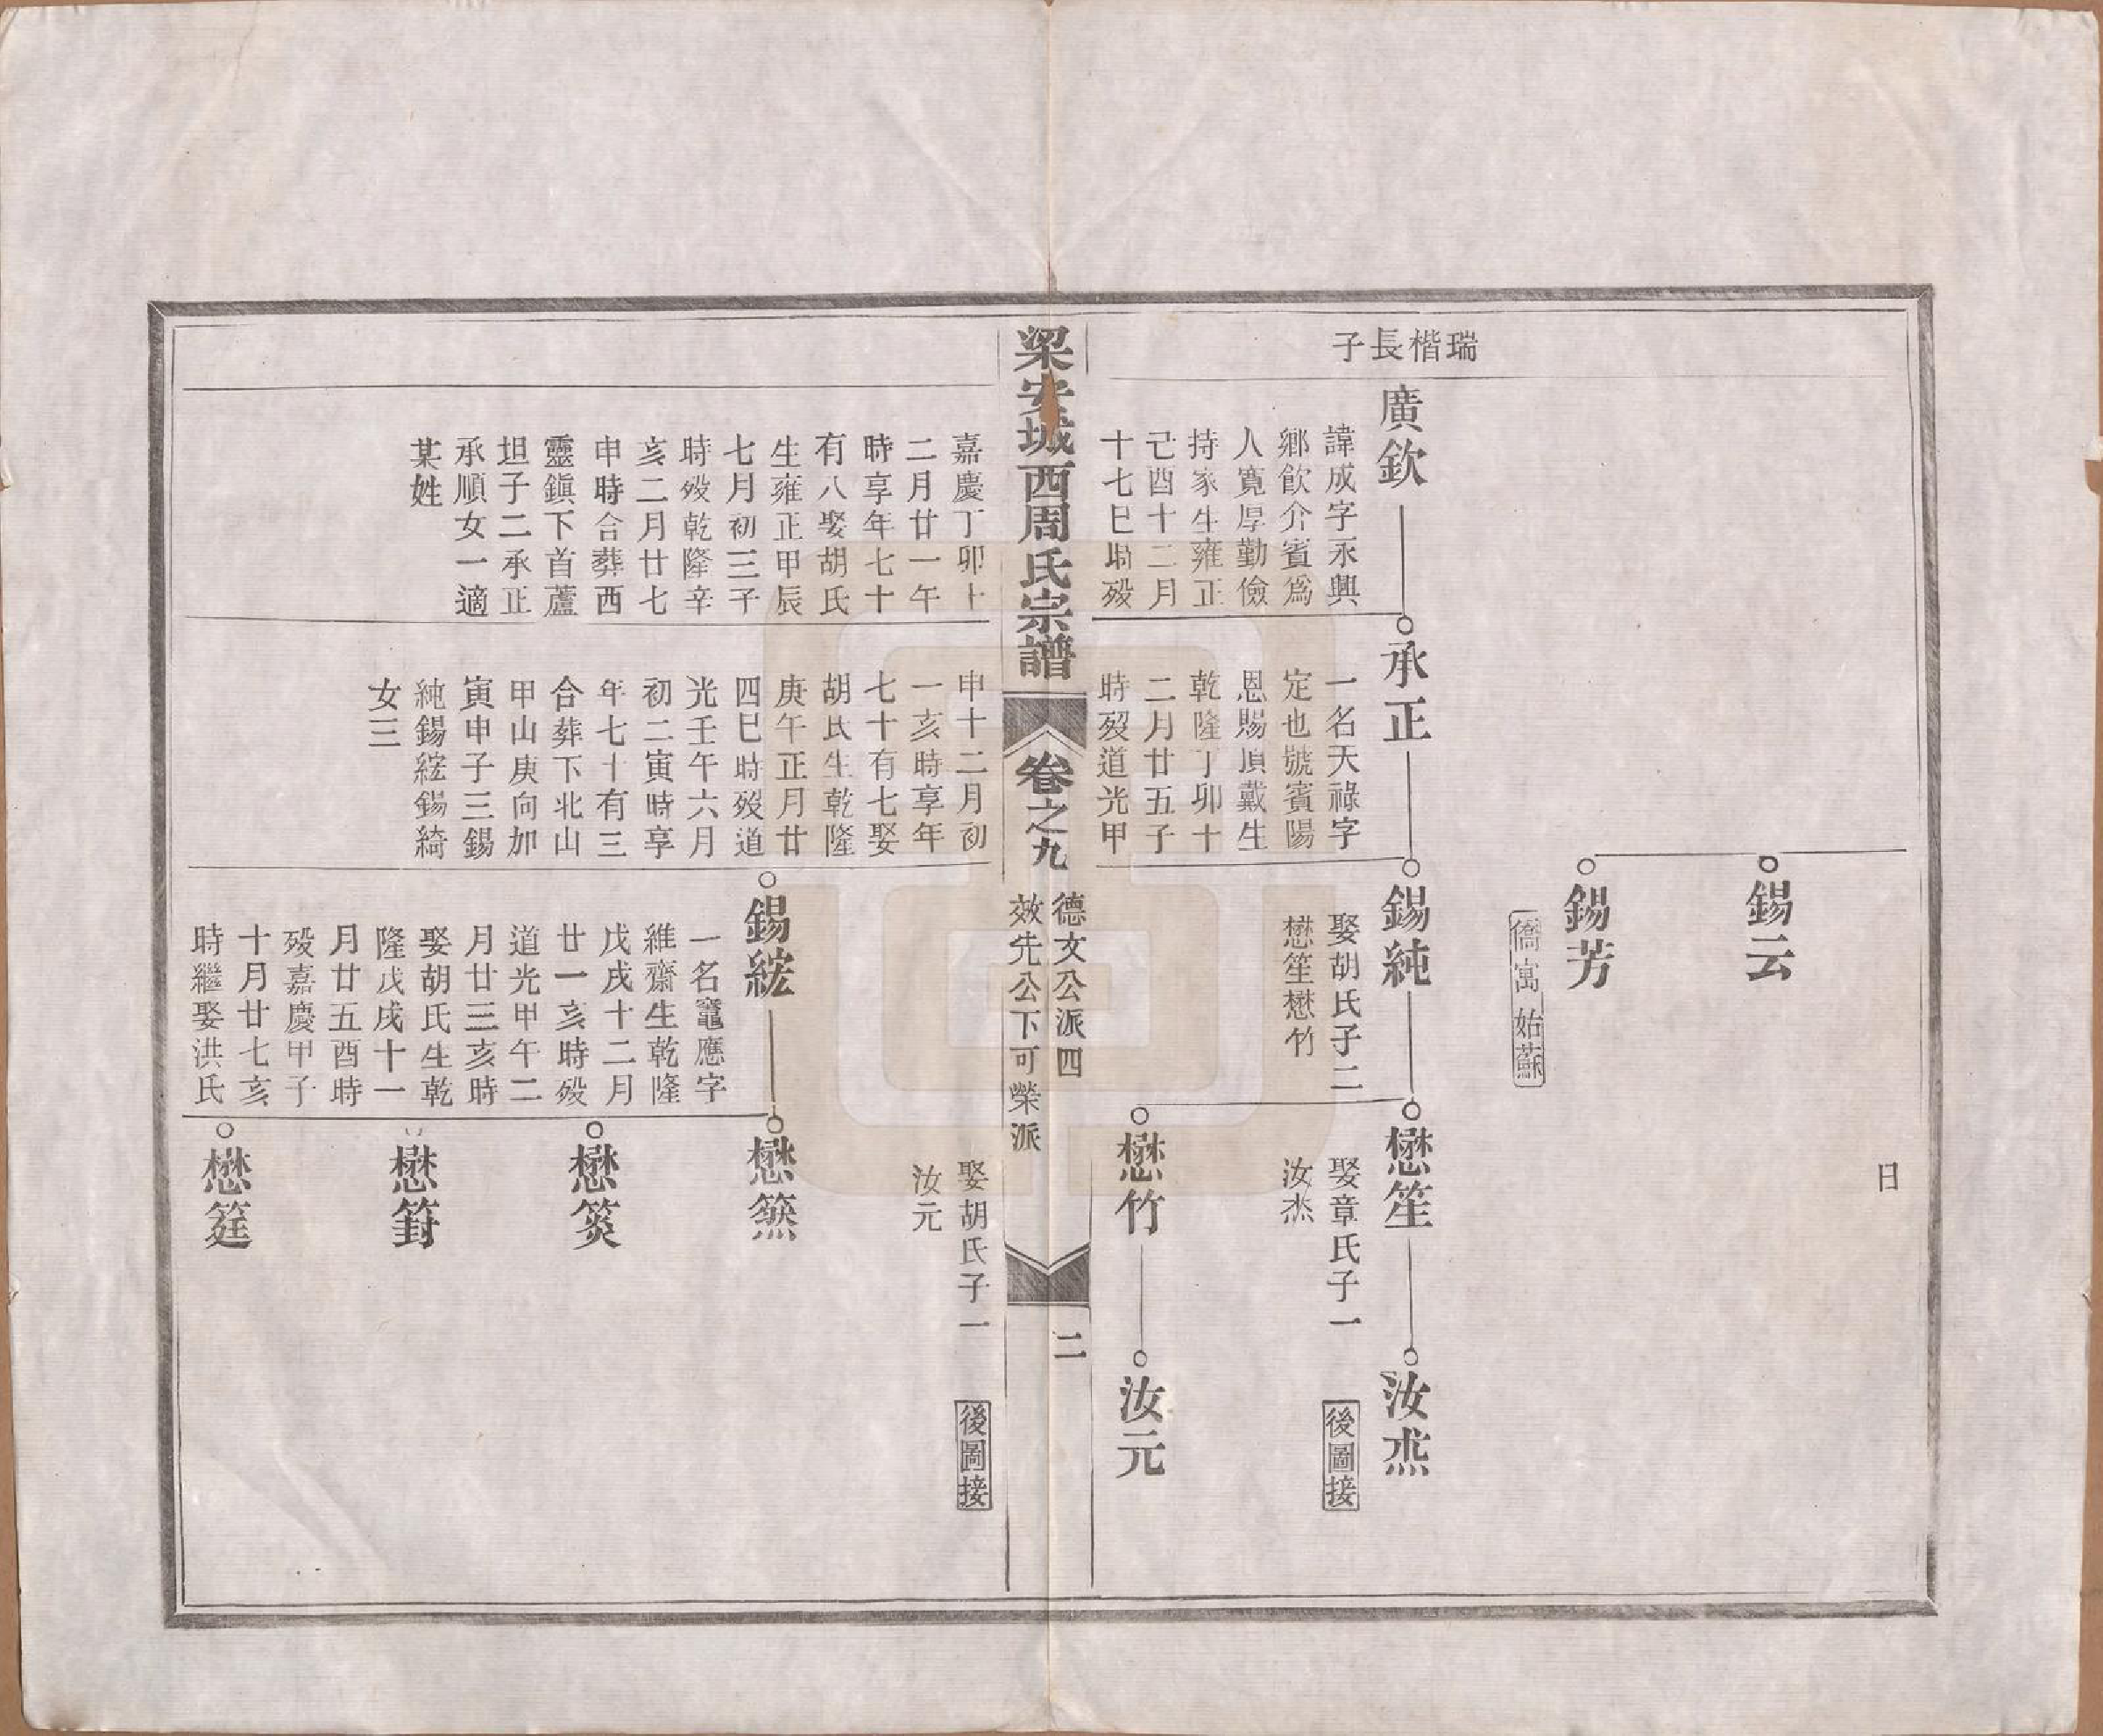 瑞楷長子
日
錫云
錫芳
僑寓姑蘇
廣欽
諱成字永興
鄉飲介賓為
人寬厚勤儉
持家生雍正
己酉十二月
十七巳時歿
承正
一名天祿字
定也號賓陽
恩賜頂戴生
乾隆丁卯十
二月廿五子
時歿道光甲
錫純
娶胡氏子二
懋笙懋竹
懋笙
娶章氏子一
汝杰
汝焘
後圖接
懋竹
汝元
梁安城西周氏宗譜
卷之九
德文公派四
效先公下可榮派
二
嘉慶丁卯十
二月廿一午
時享年七十
有八娶胡氏
生雍正甲辰
七月初三子
時歿乾隆辛
亥二月廿七
申時合葬西
靈鎮下首蘆
坦子二承正
承順女一適
某姓
申十二月初
一亥時享年
七十有七娶
胡氏生乾隆
庚午正月廿
四巳時歿道
光壬午六月
初二寅時享
年七十有三
合葬下北山
甲山庚向加
寅申子三錫
純錫綋錫綺
女三
娶胡氏子一
汝元
後圖接
錫綋
一名鼍應字
維齋生乾隆
戊戌十二月
廿一亥時歿
道光甲午二
月廿三亥時
娶胡氏生乾
隆戊戌十一
月廿五酉時
歿嘉慶甲子
十月廿七亥
時繼娶洪氏
懋篜
懋筊
懋篈
懋筳